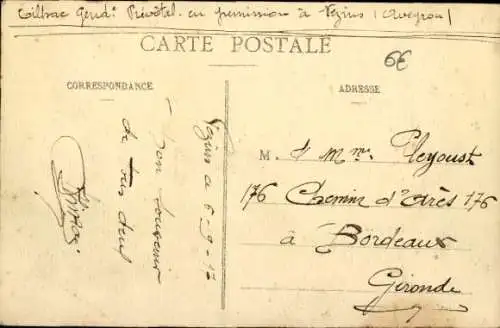 Cilhac Gend. Prévôtal en permission à Vezins (Aveyron)
CARTE POSTALE
6€
CORRESPONDANCE
ADRESSE
Vezins le 6-9-17
Bon souvenir
de tous deux
M. & Mme Pleyoust
176 Chemin d'Arès 176
à Bordeaux
Gironde